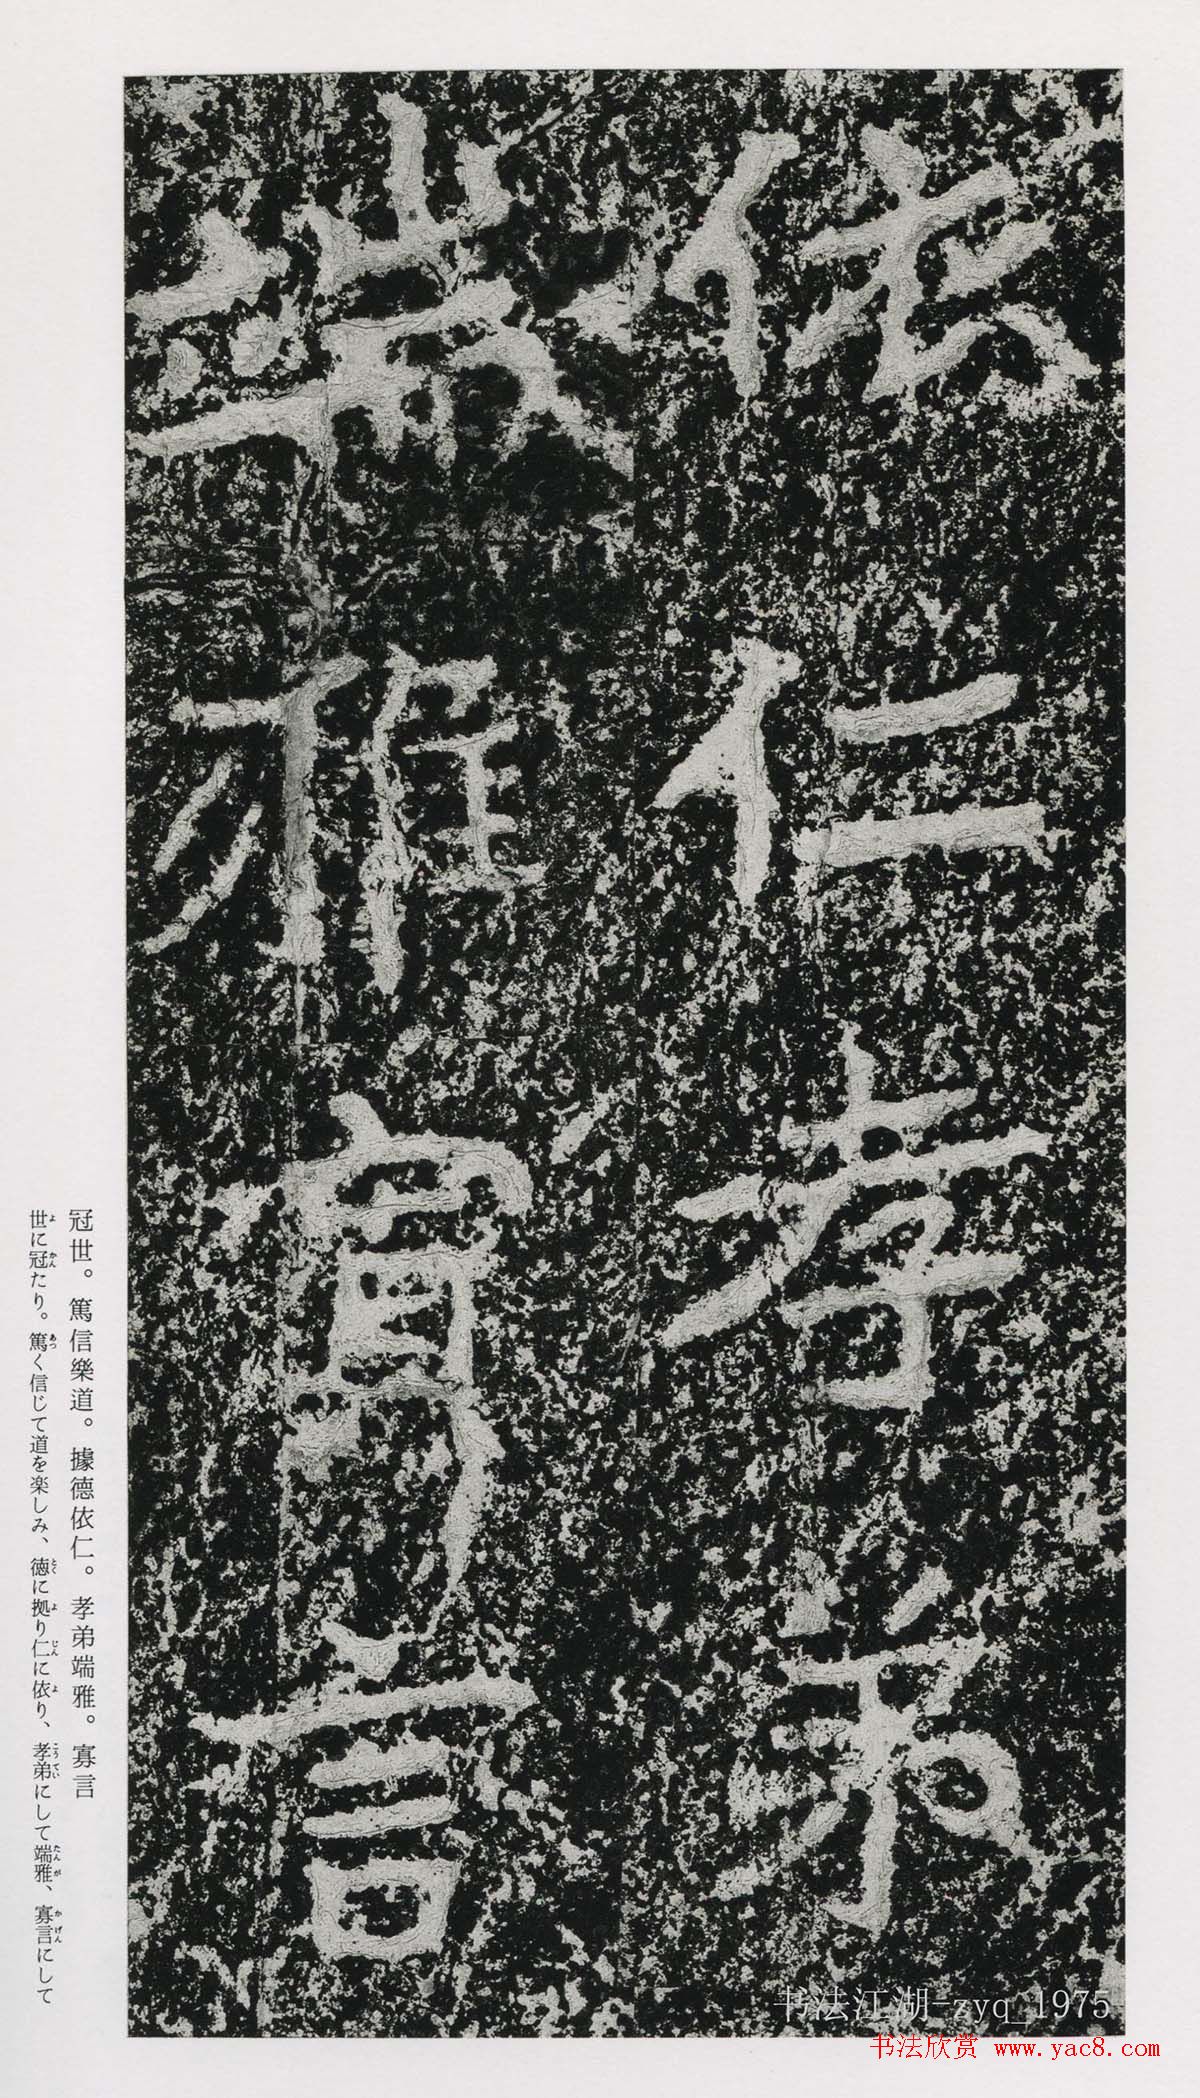 依仁孝弟
端雅寡言
冠世。篤信樂道。據德依仁。孝弟端雅。寡言
世に冠たり。篤く信じて道を楽しみ、徳に拠り仁に依り、孝弟にして端雅、寡言にして
书法江湖-zyq_1975
书法欣赏 www.yac8.com